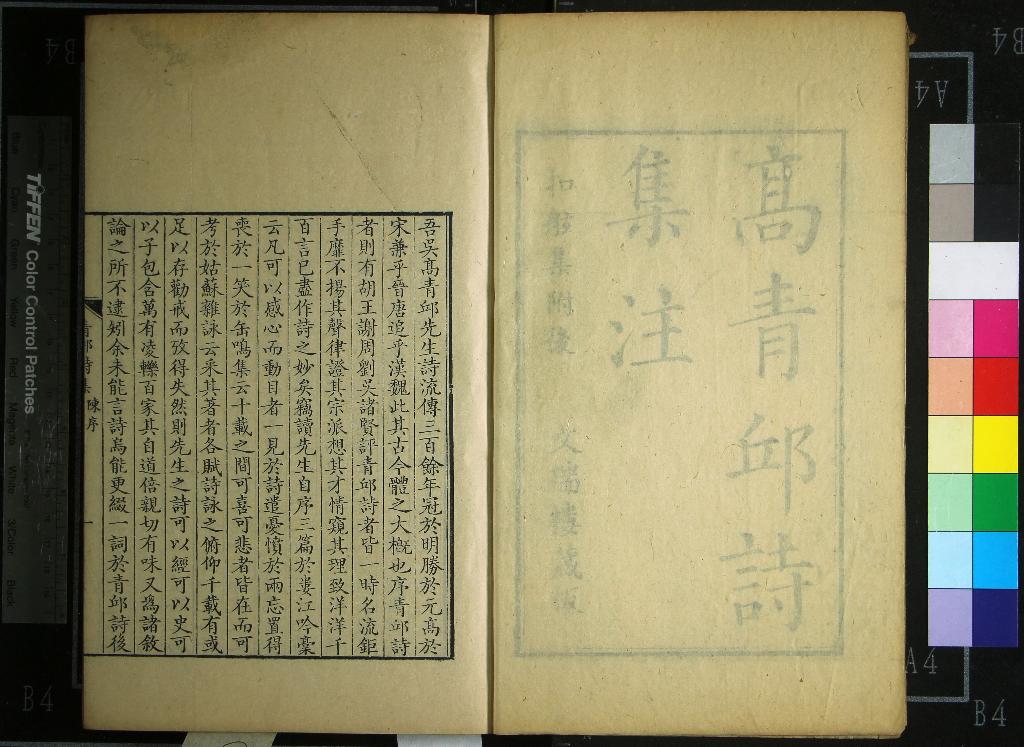 高青邱詩
集注
扣舷集附後
文瑞樓藏板
吾吳高青邱先生詩流傳三百餘年冠於明勝於元高於
宋兼乎晉唐追乎漢魏此其古今體之大槪也序青邱詩
者則有胡王謝周劉吳諸賢評青邱詩者皆一時名流鉅
手靡不揚其聲律證其宗派想其才情窺其理致洋洋千
百言已盡作詩之妙矣竊讀先生自序三篇於婁江吟稾
云凡可以感心而動目者一見於詩遣憂憤於兩忘置得
喪於一笑於缶鳴集云十載之間可喜可悲者皆在而可
考於姑蘇雜詠云采其著者各賦詩詠之俯仰千載有或
足以存勸戒而攷得失然則先生之詩可以經可以史可
以子包含萬有凌轢百家其自道倍親切有味又爲諸敘
論之所不逮矧余未能言詩烏能更綴一詞於青邱詩後
青邱詩集 陳序
一
TIFFEN Color Control Patches
Blue
Cyan
Green
Yellow
Red
Magenta
White
3/Color
Black
B4
A4
A4
B4
B4
B4